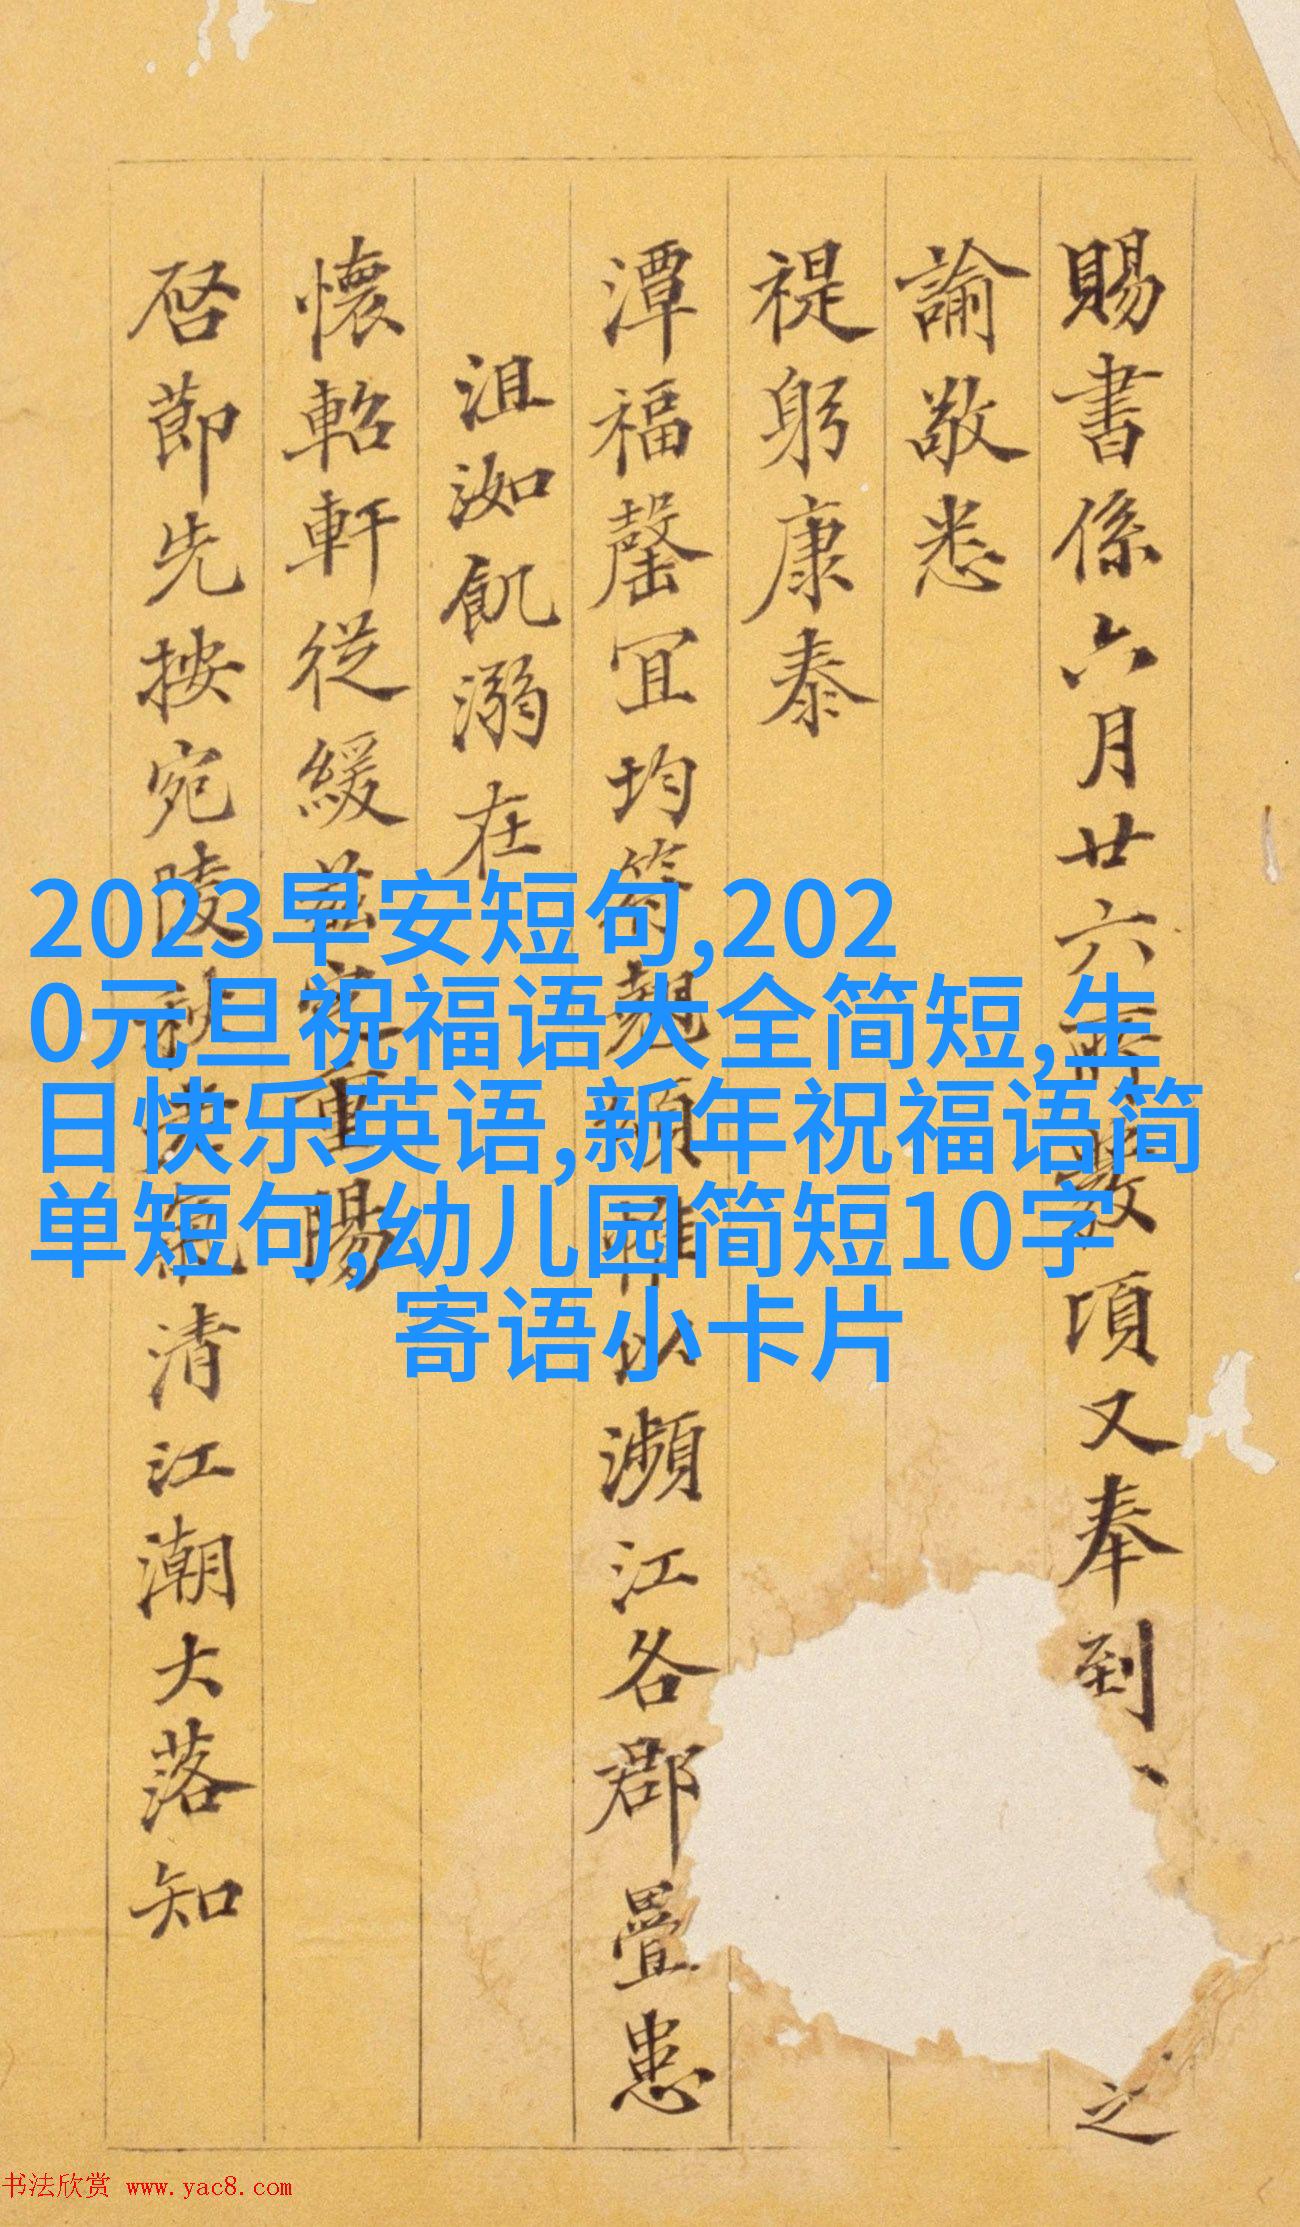 賜書係六月廿六所發項又奉到
之
諭敬悉
禔躬康泰
潭福罄宜均符翹頌惟以瀕江各郡疊患
沮洳飢溺在
懷軺軒從緩茲定重陽
啓節先按宛陵秋
清江潮大落知
2023早安短句,202
0元旦祝福语大全简短,生
日快乐英语,新年祝福语简
单短句,幼儿园简短10字
寄语小卡片
书法欣赏 www.yac8.com